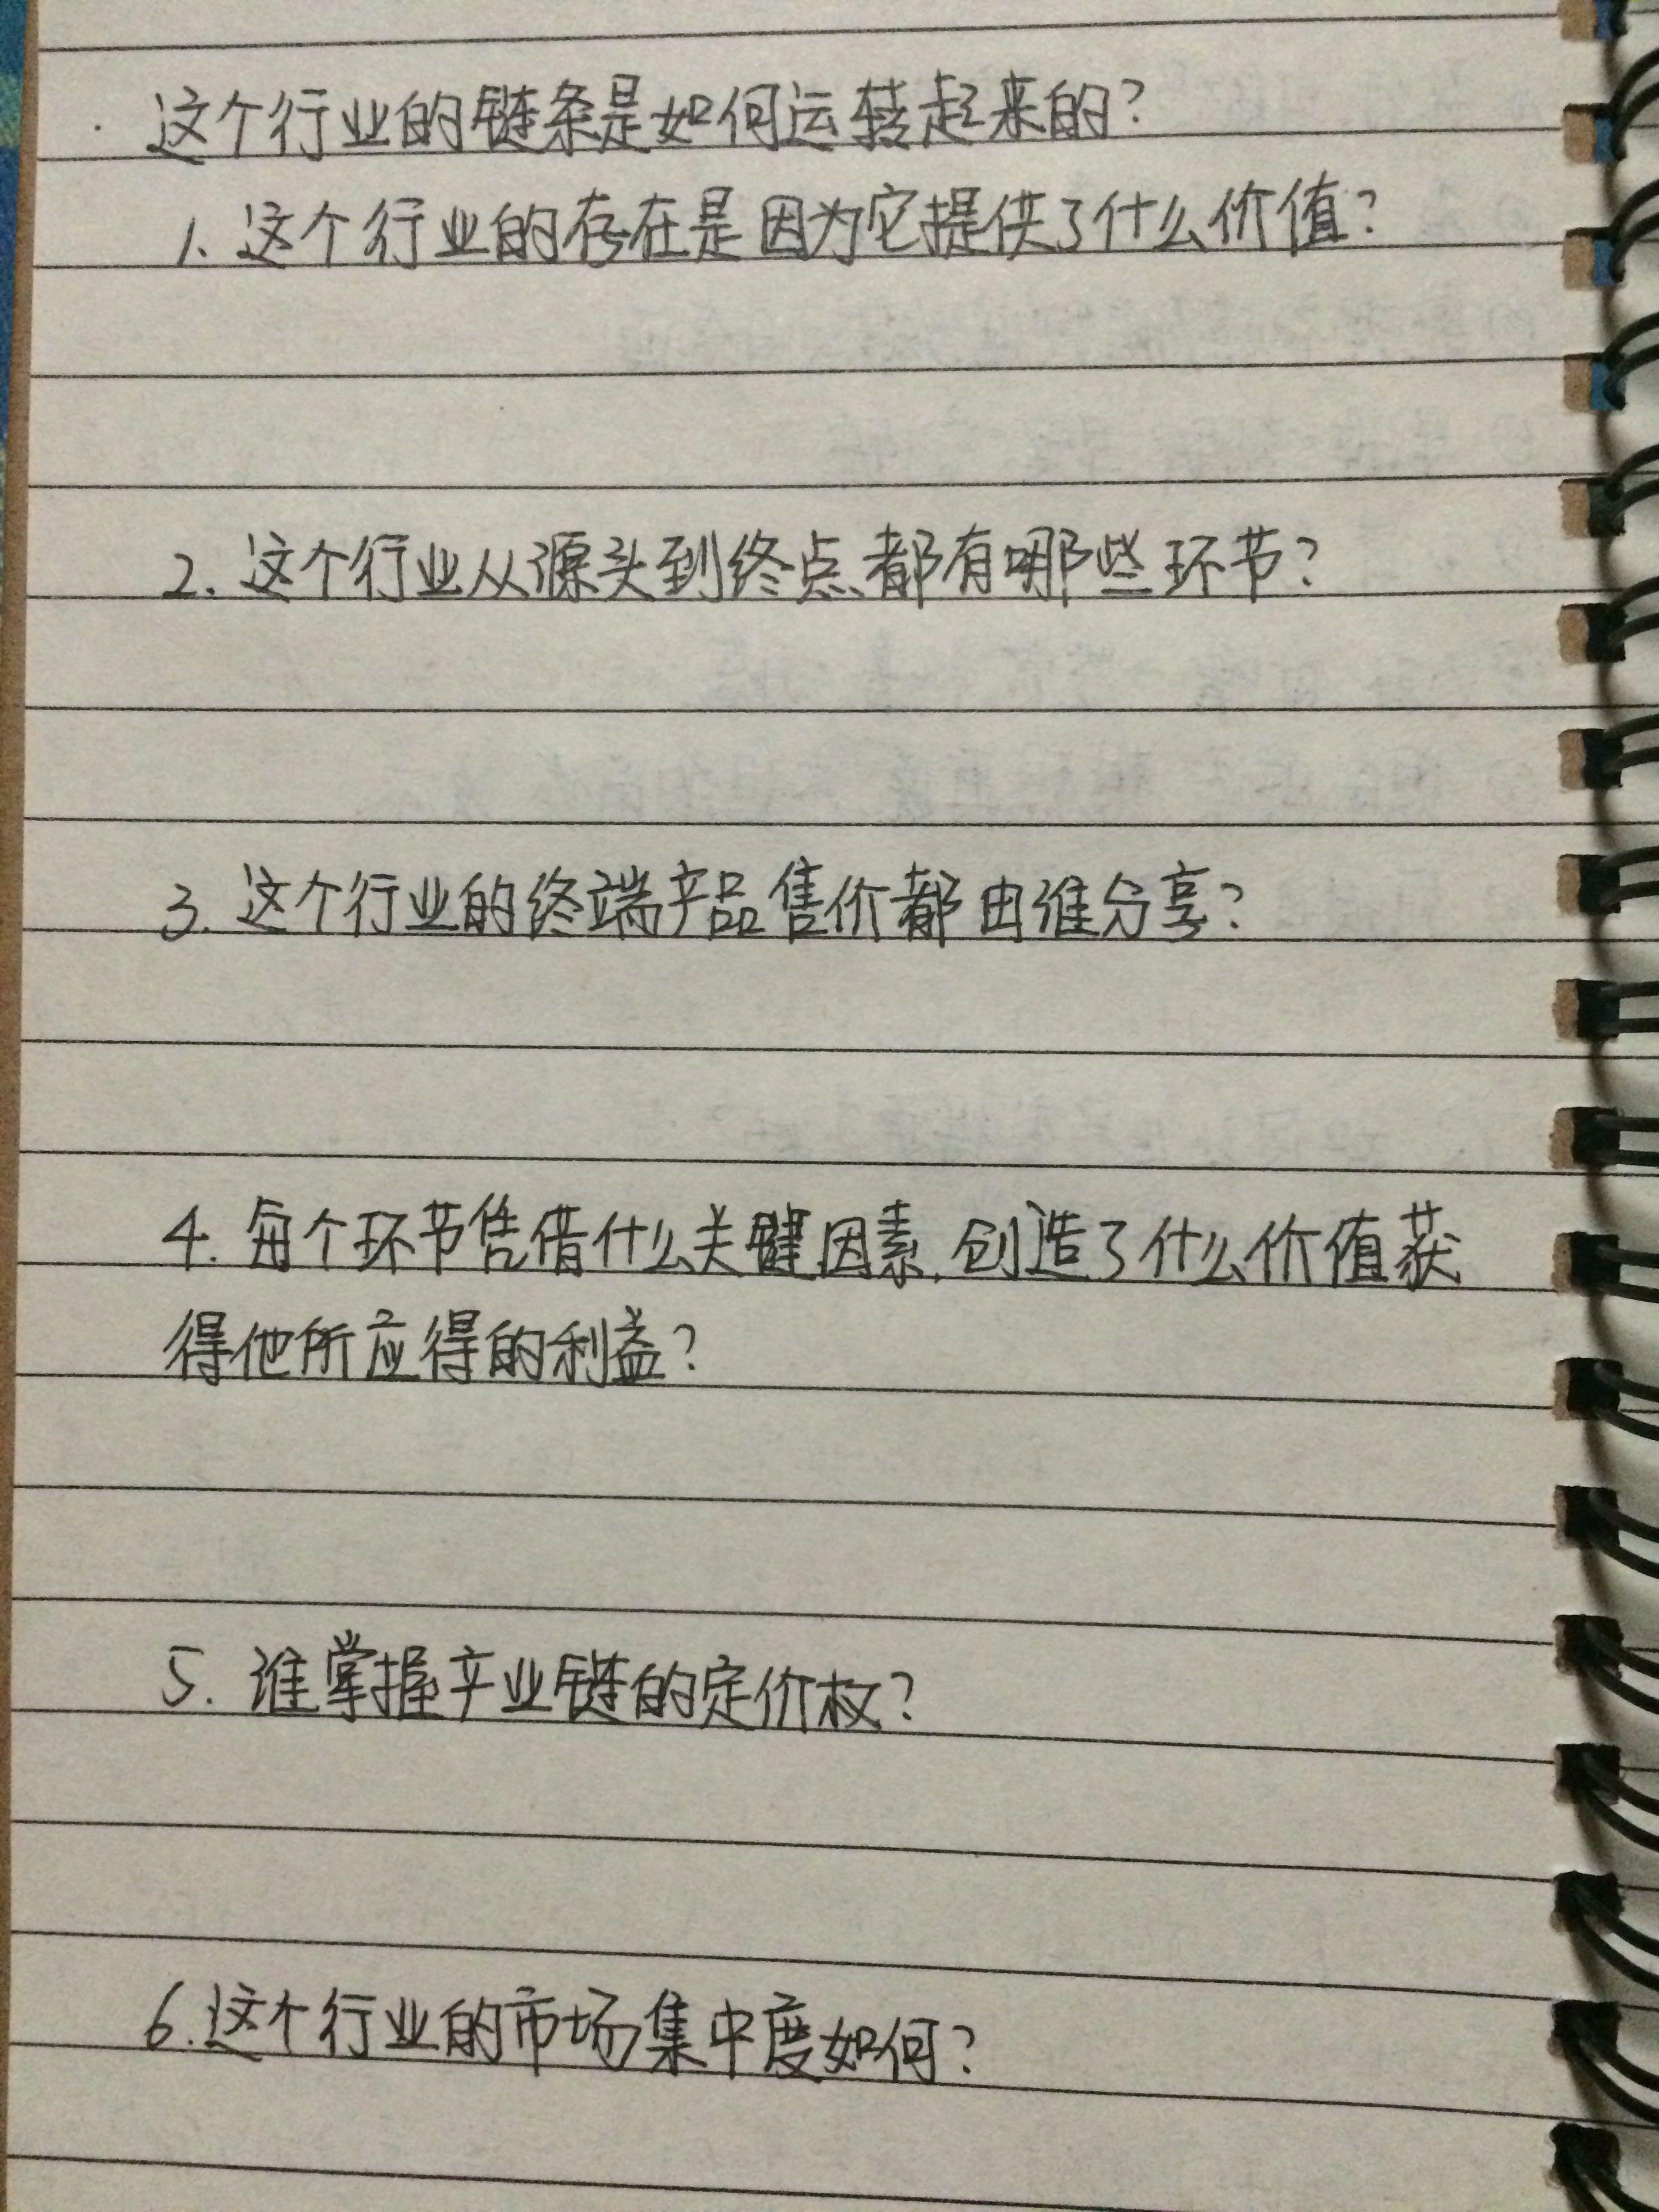 这个行业的链条是如何运转起来的?
1. 这个行业的存在是因为它提供了什么价值?
2. 这个行业从源头到终点都有哪些环节?
3. 这个行业的终端产品售价都由谁分享?
4. 每个环节凭借什么关键因素,创造了什么价值获
得他所应得的利益?
5. 谁掌握产业链的定价权?
6.这个行业的市场集中度如何?